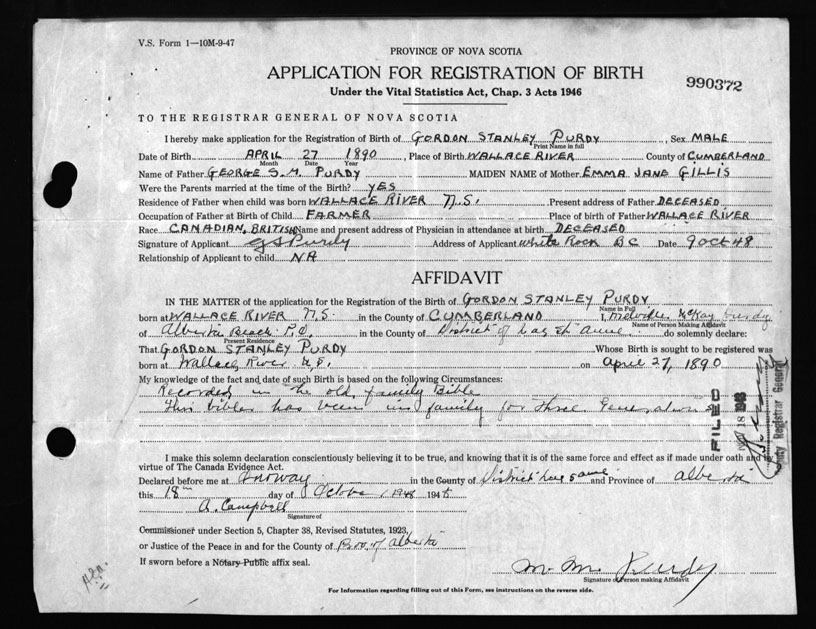 V.S. Form 1—10M-9-47
PROVINCE OF NOVA SCOTIA
APPLICATION FOR REGISTRATION OF BIRTH
990372
Under the Vital Statistics Act, Chap. 3 Acts 1946
TO THE REGISTRAR GENERAL OF NOVA SCOTIA
I hereby make application for the Registration of Birth of GORDON STANLEY PURDY, Sex MALE
Print Name in full
Date of Birth APRIL 27 1890, Place of Birth WALLACE RIVER County of CUMBERLAND
Month Date Year
Name of Father GEORGE S.M. PURDY MAIDEN NAME of Mother EMMA JANE GILLIS
Were the Parents married at the time of the Birth? YES
Residence of Father when child was born WALLACE RIVER N.S. Present address of Father DECEASED
Occupation of Father at Birth of Child FARMER Place of birth of Father WALLACE RIVER
Race CANADIAN, BRITISH Name and present address of Physician in attendance at birth DECEASED
Signature of Applicant GS Purdy Address of Applicant White Rock BC Date 9 Oct 48
Relationship of Applicant to child NA
AFFIDAVIT
IN THE MATTER of the application for the Registration of the Birth of GORDON STANLEY PURDY
Name in Full
born at WALLACE RIVER N.S. in the County of CUMBERLAND I, McKay Purdy
Name of Person Making Affidavit
of Alberta Beach P.O. in the County of District of Lac St Anne do solemnly declare:
Present Residence
That GORDON STANLEY PURDY Whose Birth is sought to be registered was
born at Wallace River N.S. on April 27, 1890
My knowledge of the fact and date of such Birth is based on the following Circumstances:
Recorded in the old family Bible
This bible has been in family for three Generations
FILED
18 1948
Registrar General
I make this solemn declaration conscientiously believing it to be true, and knowing that it is of the same force and effect as if made under oath and by
virtue of The Canada Evidence Act.
Declared before me at Onoway in the County of District Lac St Anne and Province of Alberta
this 18th day of October 1948 194
A. Campbell
Signature of
Commissioner under Section 5, Chapter 38, Revised Statutes, 1923,
or Justice of the Peace in and for the County of Prov. of Alberta
If sworn before a Notary Public affix seal.
M. Mc Purdy
Signature of Person making Affidavit
For Information regarding filling out of this Form, see instructions on the reverse side.